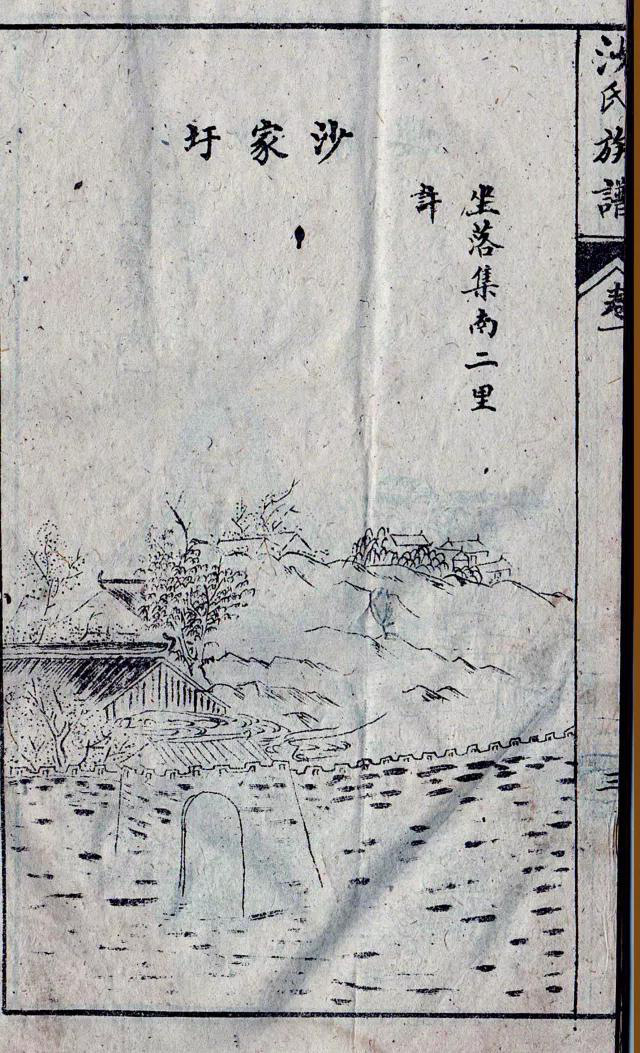 沙氏族譜
卷
坐落集南二里
許
沙家圩